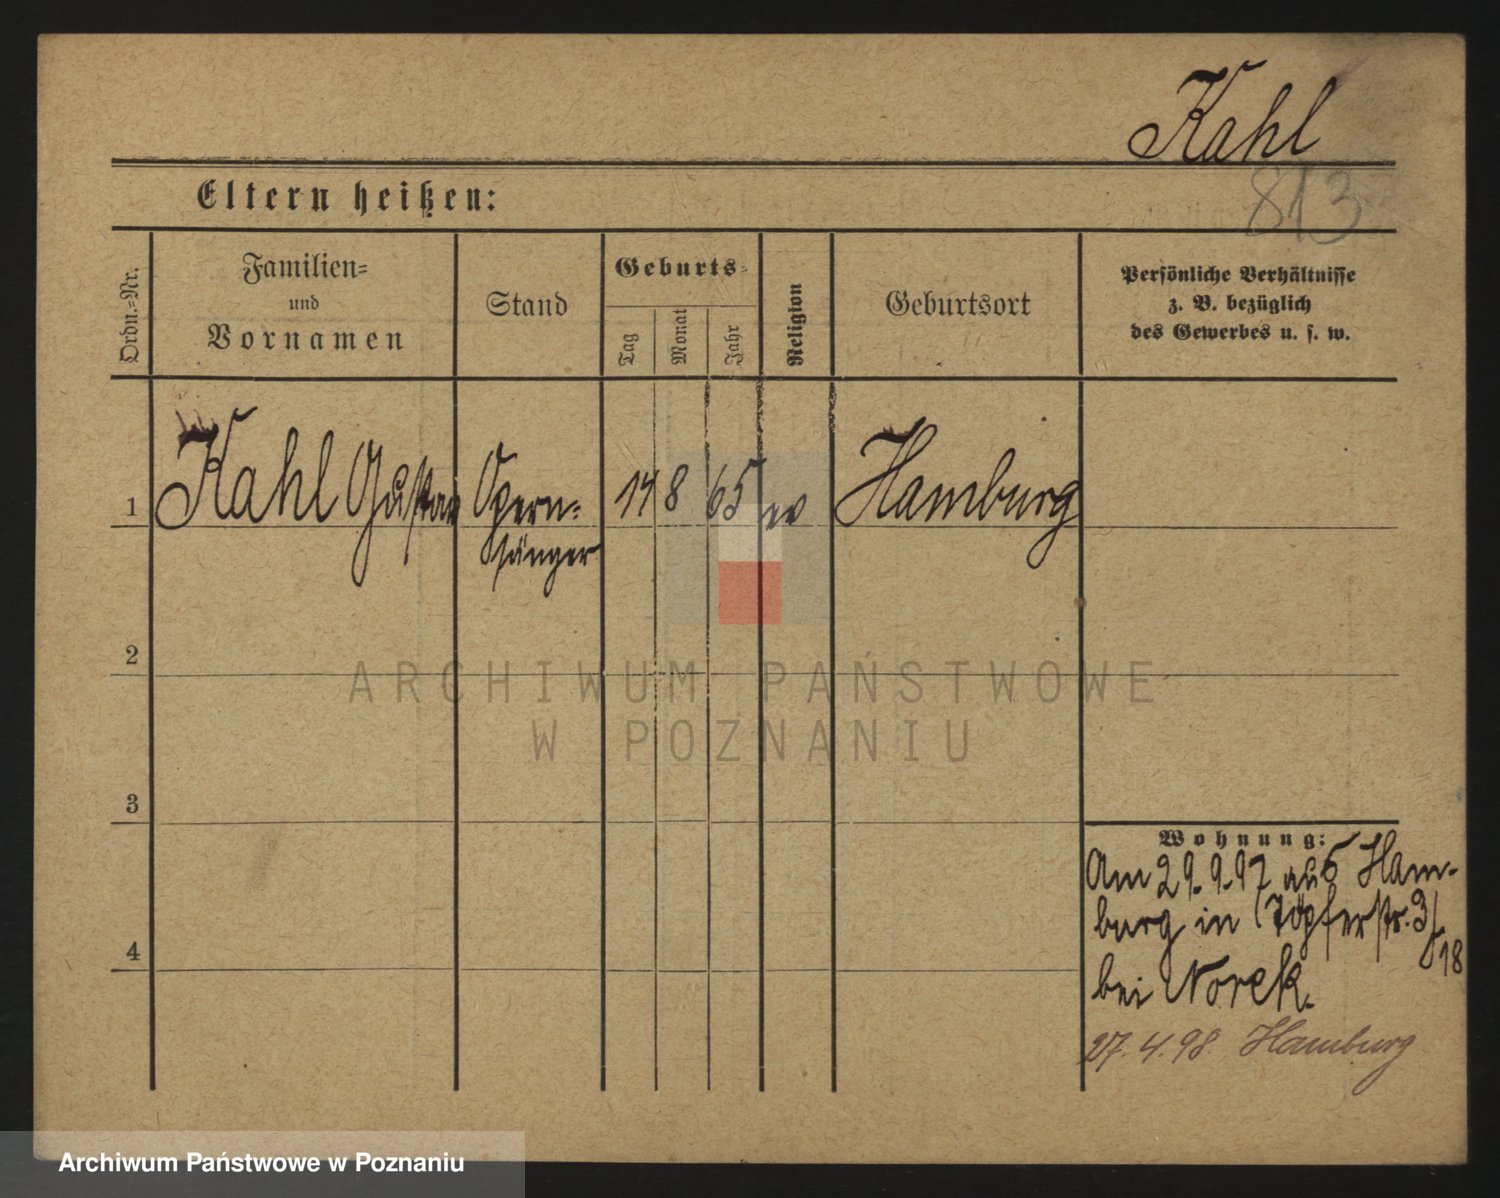 Kahl
813
Eltern heißen:
Ordn.=Nr.
Familien=
und
Vornamen
Stand
Geburts=
Tag
Monat
Jahr
Religion
Geburtsort
Persönliche Verhältnisse
z. B. bezüglich
des Gewerbes u. s. w.
1 Kahl Gustav Opern= 14 8 65 ev Hamburg
sänger
2
3
4
Wohnung:
Am 29.9.97 aus Ham-
burg in Töpferstr. 3/
18
bei Norek.
27.4.98. Hamburg
ARCHIWUM PAŃSTWOWE
W POZNANIU
Archiwum Państwowe w Poznaniu